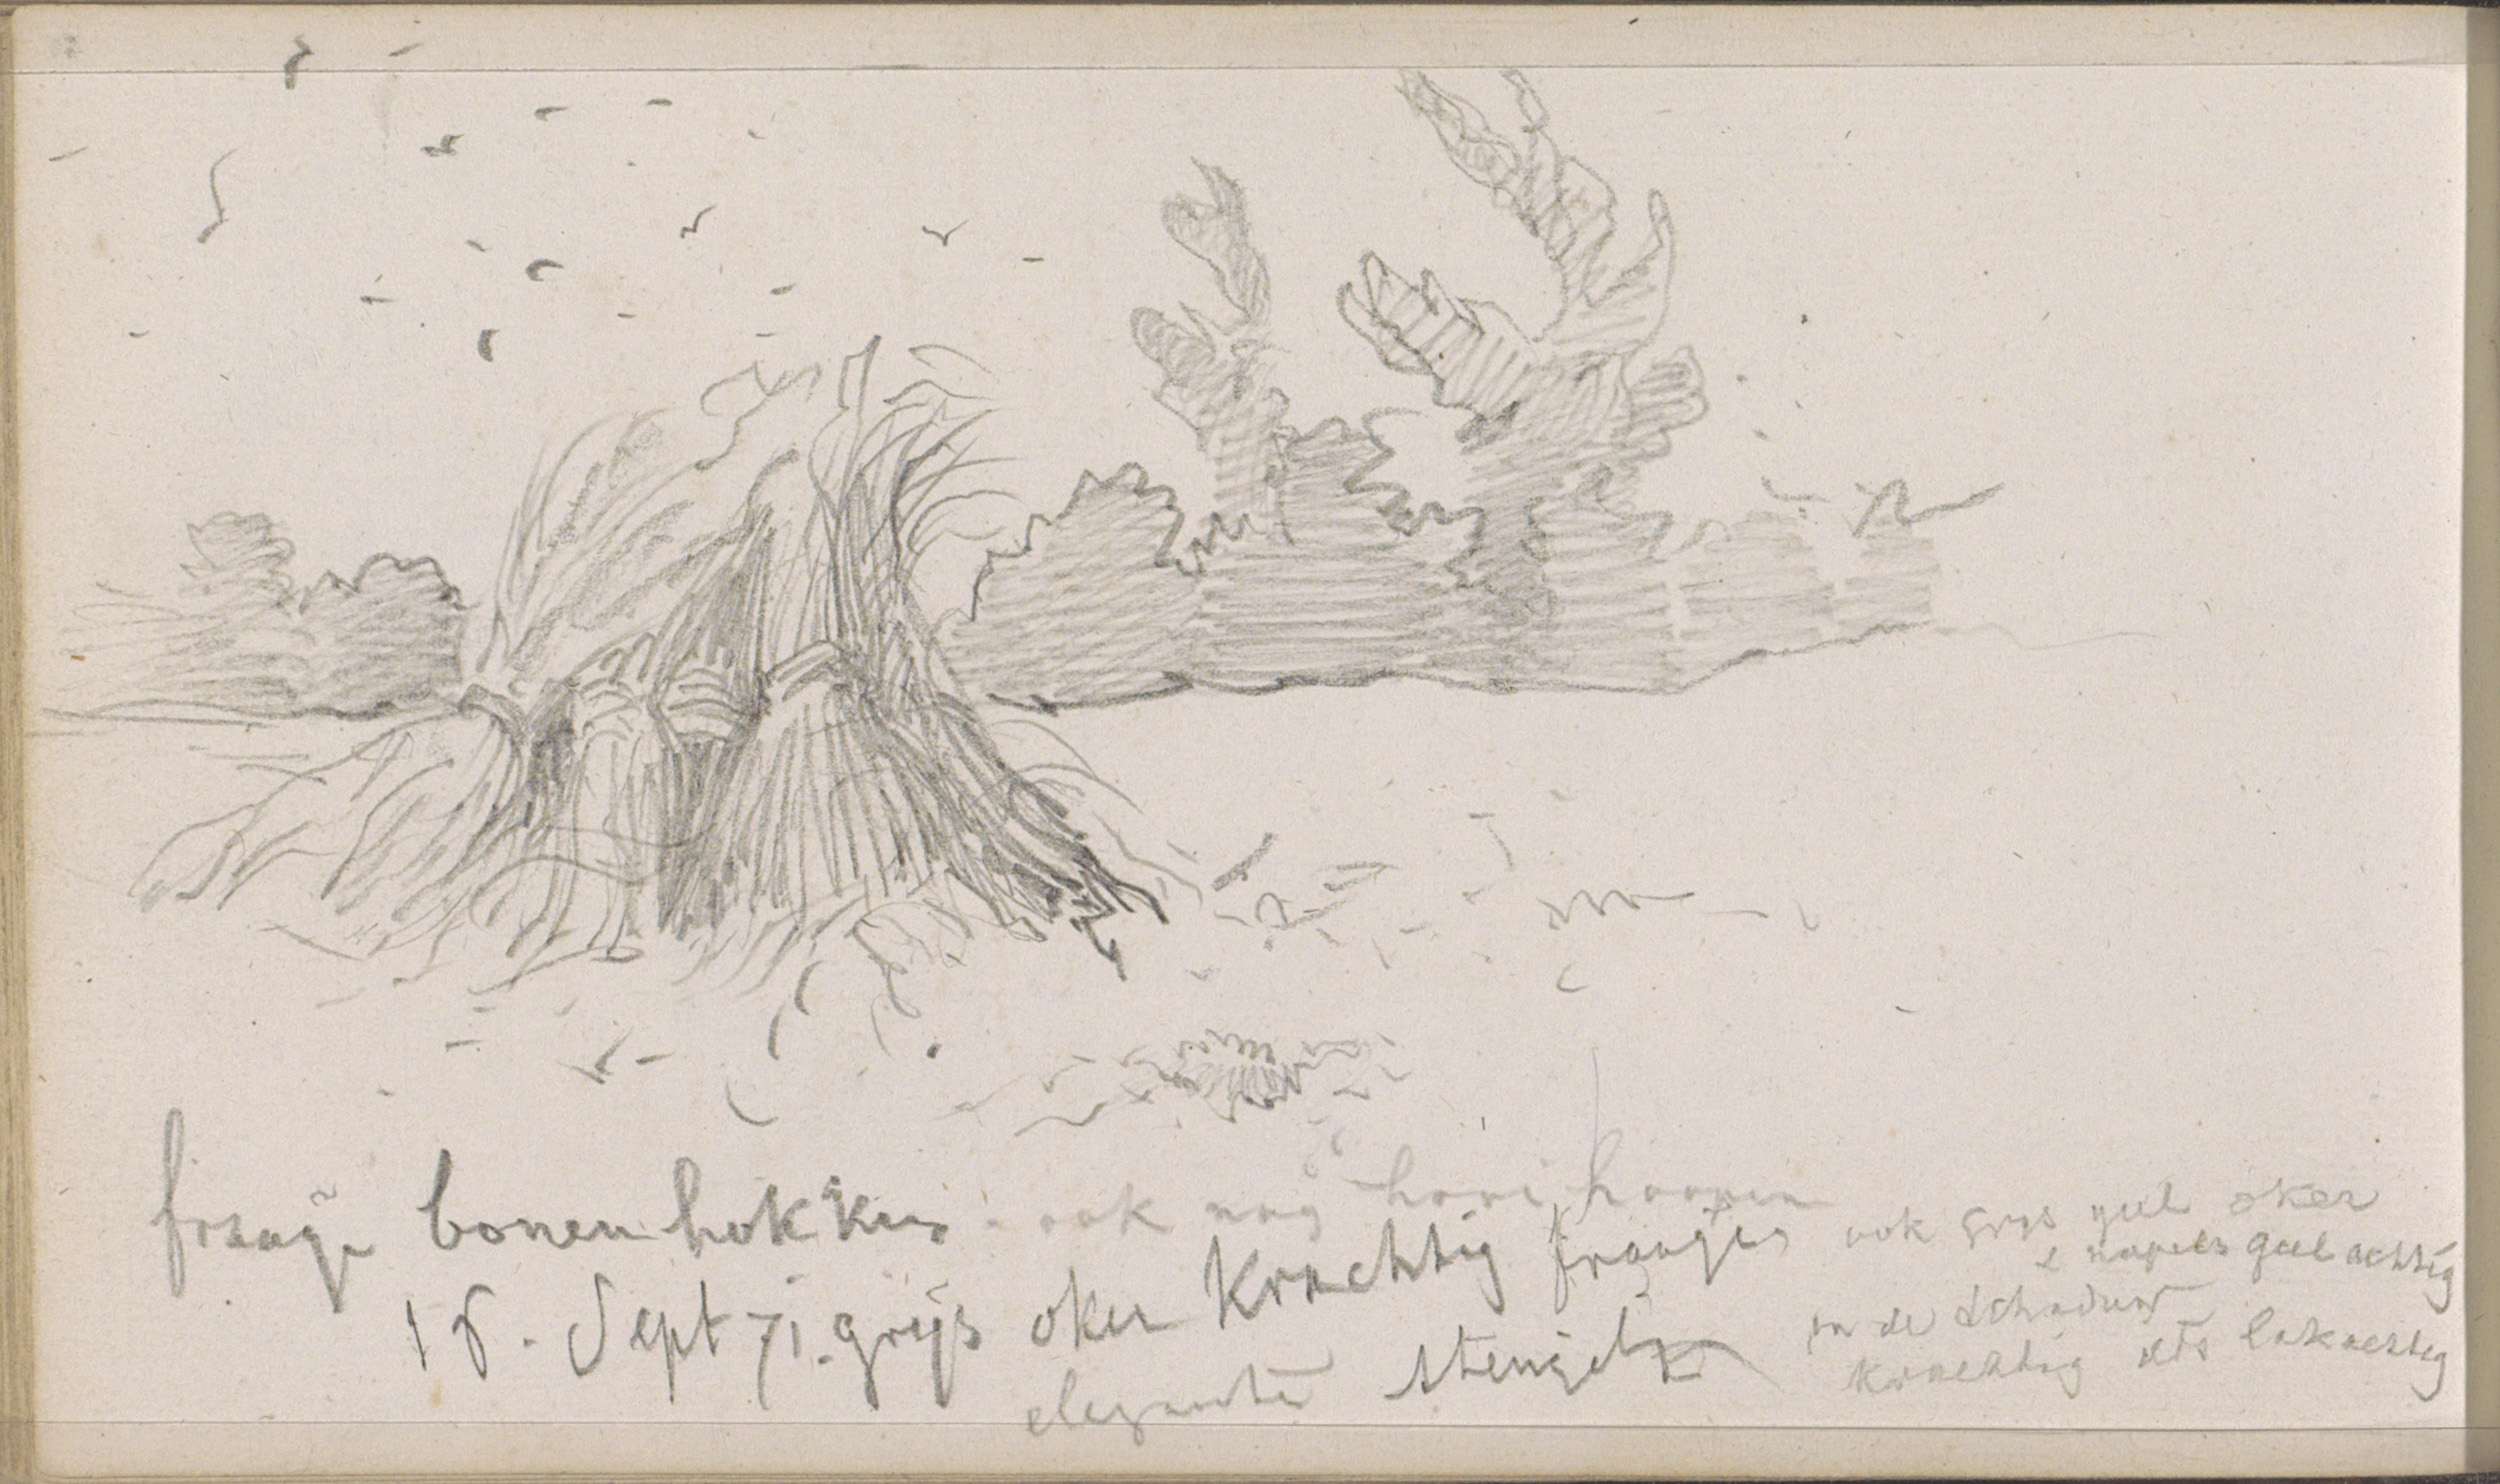 fraaije bonenhokken. ook nog hooi hoopen
18. Sept 71. grijs oker Krachtig franjes
elegante stengels
ook grijs geel oker
& napels geel achtig
in de schaduw
krachtig iets lakachtig